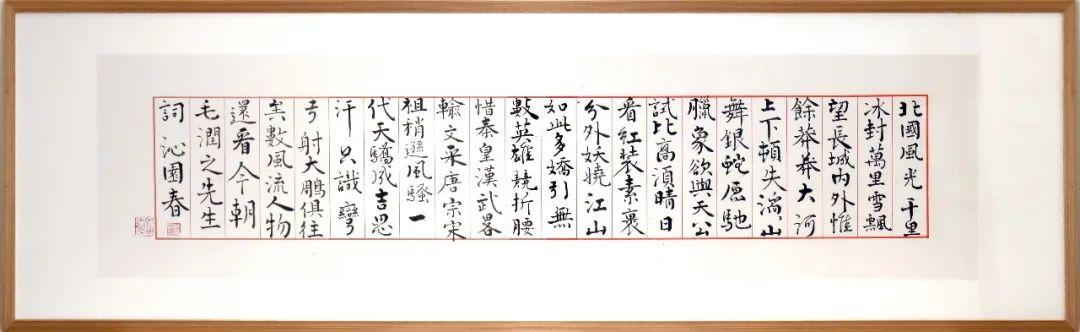 北國風光千里
冰封萬里雪飄
望長城內外惟
餘莽莽大河
上下頓失滔山
舞銀蛇原馳
臘象欲與天公
試比高須晴日
看紅裝素裹
分外妖嬈江山
如此多嬌引無
數英雄競折腰
惜秦皇漢武畧
輸文采唐宗宋
祖稍遜風騷一
代天驕成吉思
汗只識彎
弓射大鵰俱往
矣數風流人物
還看今朝
毛潤之先生
詞沁園春